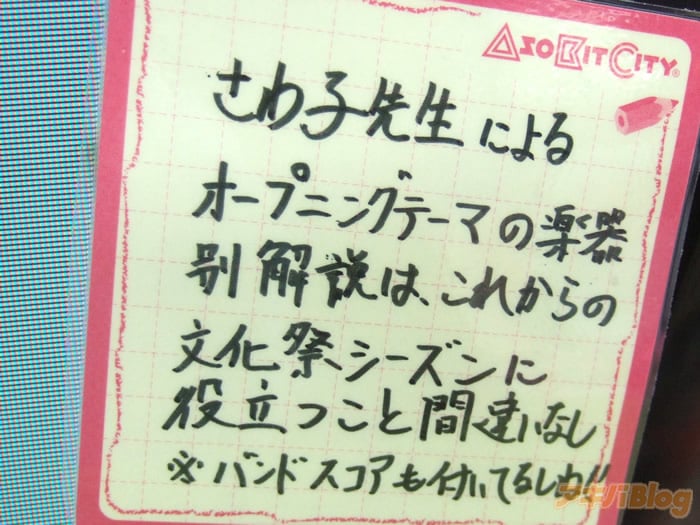 ASOBITCITY®
さわ子先生による
オープニングテーマの楽器
別解説は、これからの
文化祭シーズンに
役立つこと間違いなし
※バンドスコアも付いてるし
アキバBlog